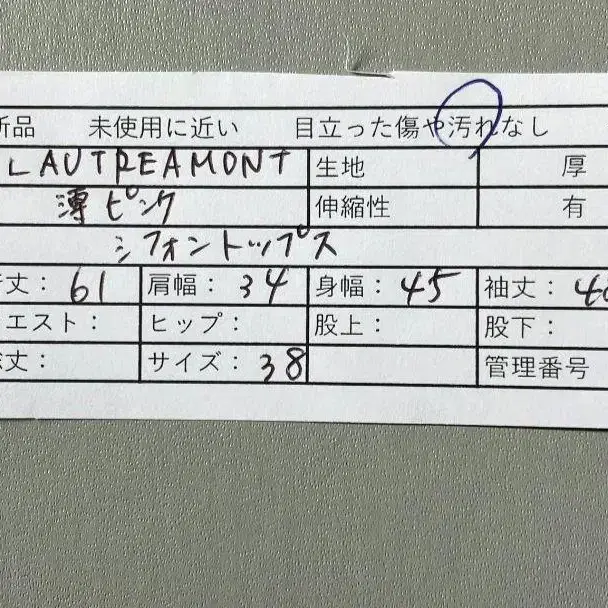 新品 未使用に近い 目立った傷や汚れなし
LAUTREAMONT 生地 厚
薄ピンク 伸縮性 有
シフォントップス
丈： 61 肩幅： 34 身幅： 45 袖丈：
エスト： ヒップ： 股上： 股下：
丈： サイズ： 38 管理番号